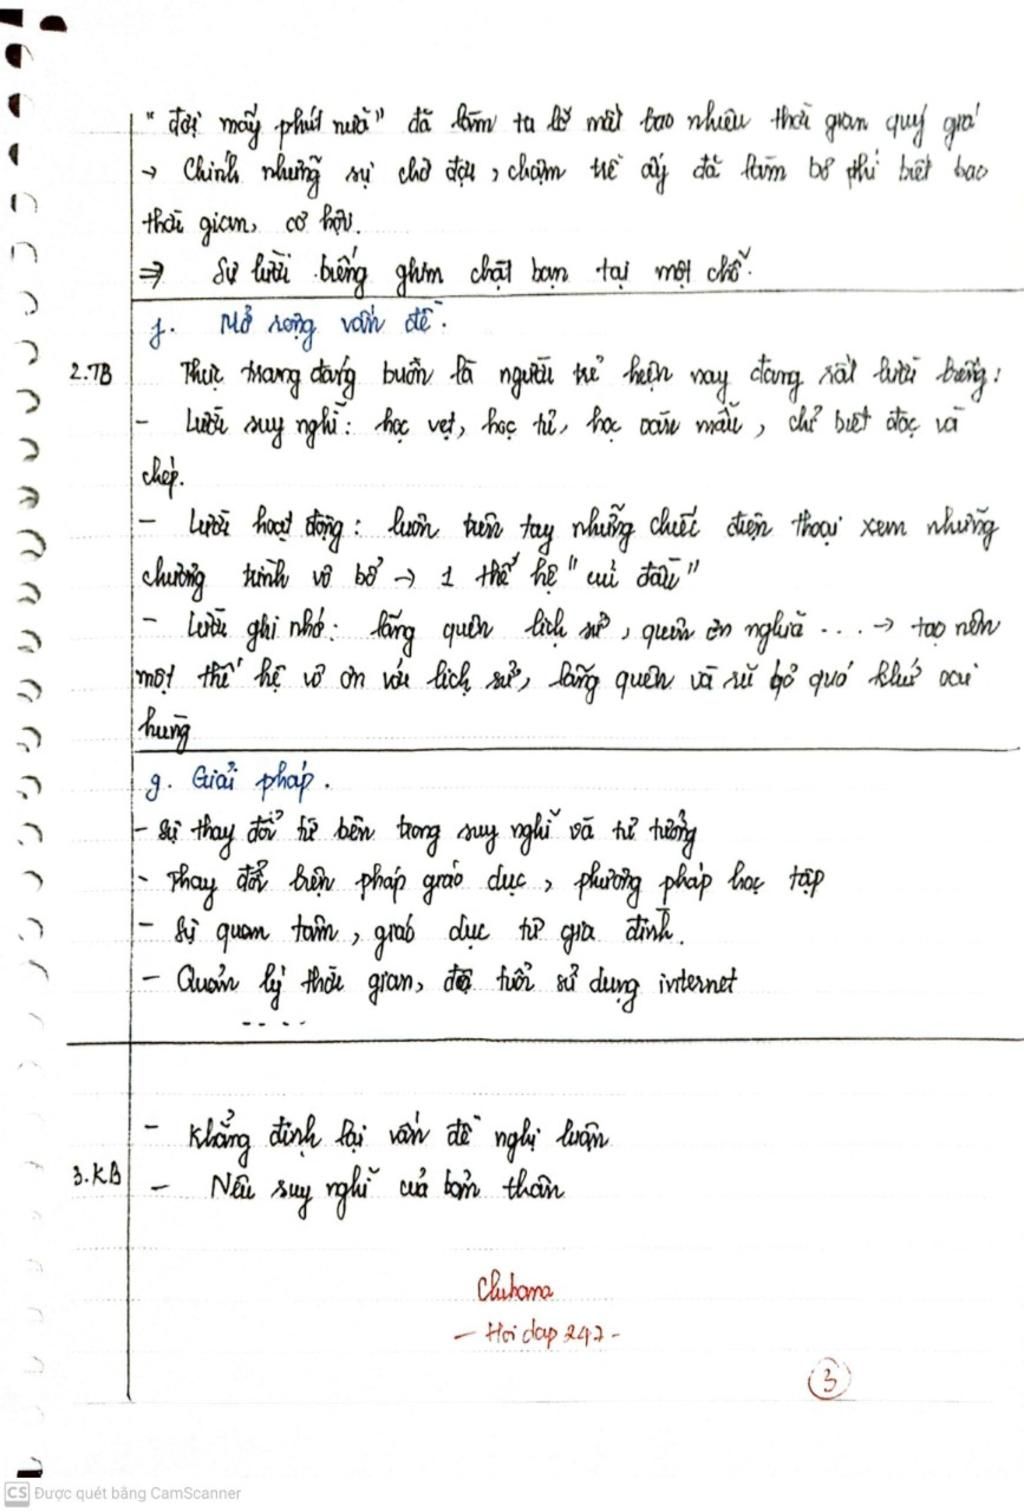 "đợi mấy phút nữa" đã làm ta lỡ mất bao nhiêu thời gian quý giá
→ Chính những sự chờ đợi, chậm trễ ấy đã làm bỏ phí biết bao
thời gian, cơ hội.
⇒ Sự lười biếng ghìm chặt bạn tại một chỗ.
f. Mở rộng vấn đề.
2.TB
Thực trạng đáng buồn là người trẻ hiện nay đang rất lười biếng:
- Lười suy nghĩ: học vẹt, học tủ, học văn mẫu, chỉ biết đọc và
chép.
- Lười hoạt động: luôn trên tay những chiếc điện thoại xem những
chương trình vô bổ → 1 thế hệ "cúi đầu"
- Lười ghi nhớ: lãng quên lịch sử, quên ơn nghĩa ... → tạo nên
một thế hệ vô ơn với lịch sử, lãng quên và rũ bỏ quá khứ oai
hùng
g. Giải pháp.
- Sự thay đổi từ bên trong suy nghĩ và tư tưởng
- Thay đổi biện pháp giáo dục, phương pháp học tập
- Sự quan tâm, giáo dục từ gia đình.
- Quản lý thời gian, độ tuổi sử dụng internet
....
- Khẳng định lại vấn đề nghị luận
3.KB
- Nêu suy nghĩ của bản thân
Chuhana
- Hoi dap 247 -
3
CS Được quét bằng CamScanner